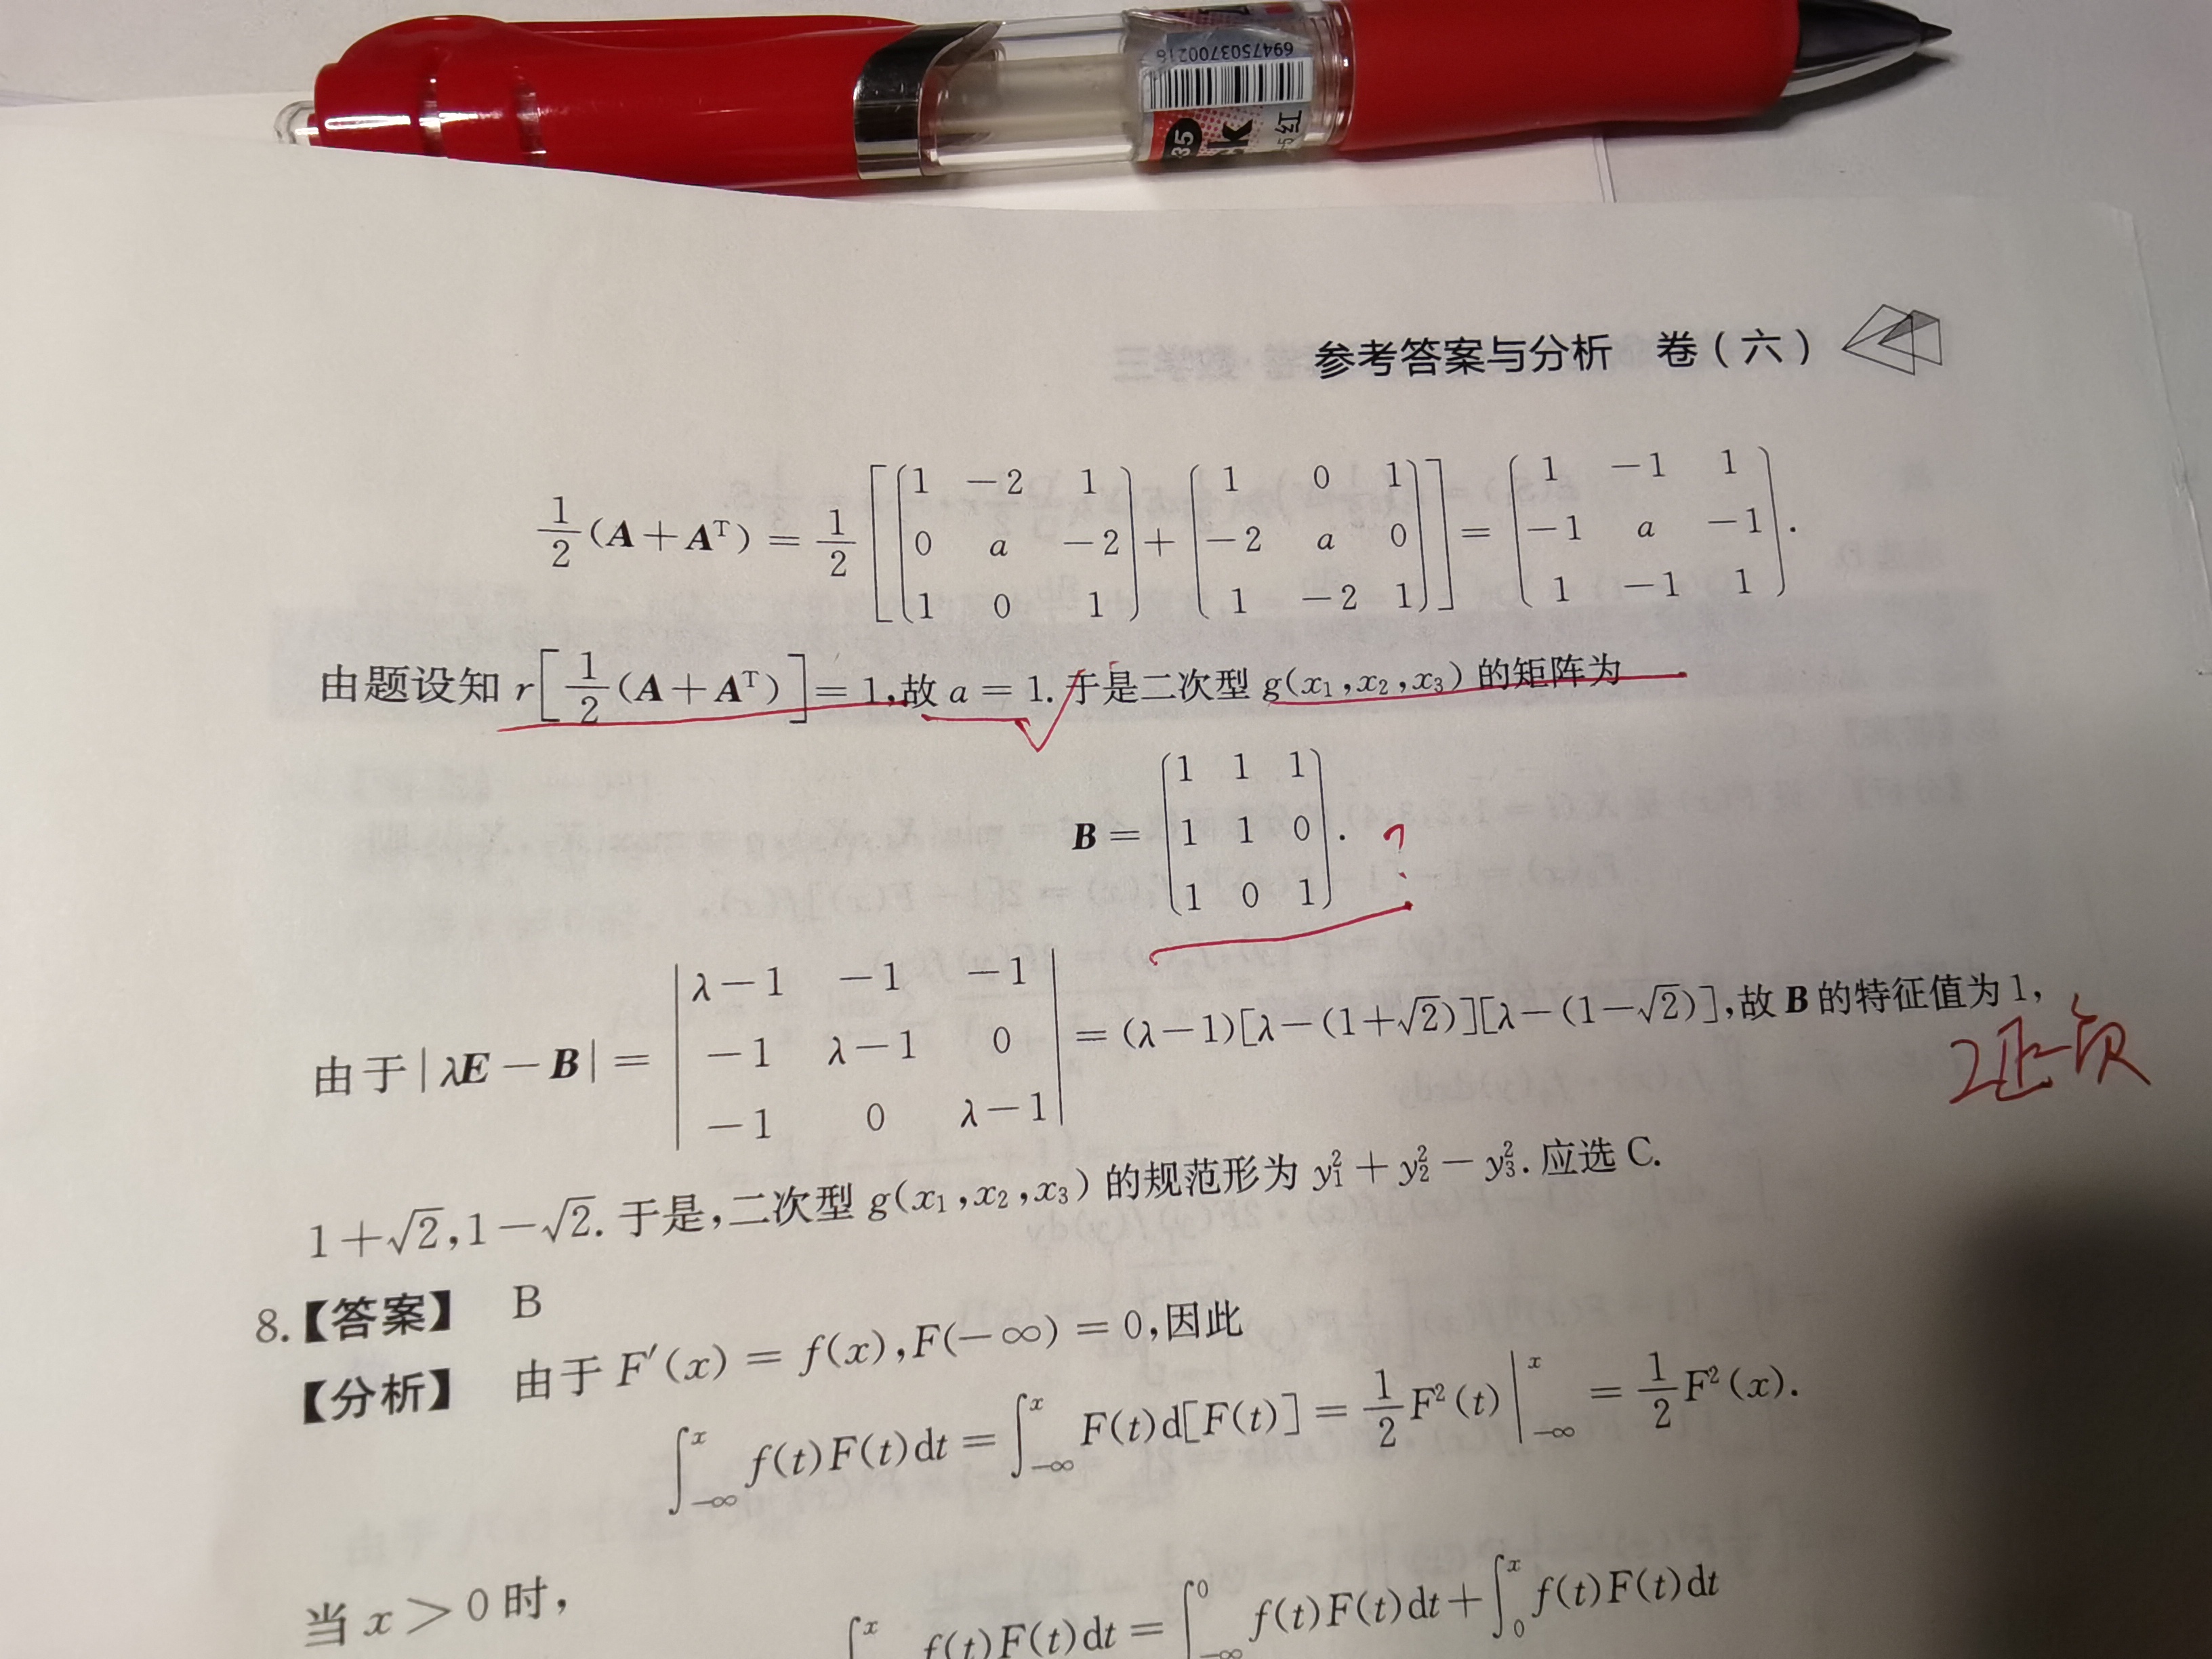 6947503700216
35
红
参考答案与分析 卷(六)
$\frac{1}{2}(A+A^{T})=\frac{1}{2}\left[\begin{pmatrix}1&-2&1\\0&a&-2\\1&0&1\end{pmatrix}+\begin{pmatrix}1&0&1\\-2&a&0\\1&-2&1\end{pmatrix}\right]=\begin{pmatrix}1&-1&1\\-1&a&-1\\1&-1&1\end{pmatrix}.$
由题设知 $r\left[\frac{1}{2}(A+A^{T})\right]=1$,故 $a=1$. 于是二次型 $g(x_1,x_2,x_3)$ 的矩阵为
$B=\begin{pmatrix}1&1&1\\1&1&0\\1&0&1\end{pmatrix}.$ ?
由于 $|\lambda E-B|=\begin{vmatrix}\lambda-1&-1&-1\\-1&\lambda-1&0\\-1&0&\lambda-1\end{vmatrix}=(\lambda-1)[\lambda-(1+\sqrt{2})][\lambda-(1-\sqrt{2})]$,故 $B$ 的特征值为 1,
2正一负
$1+\sqrt{2},1-\sqrt{2}$. 于是,二次型 $g(x_1,x_2,x_3)$ 的规范形为 $y_1^2+y_2^2-y_3^2$. 应选 C.
8.【答案】 B
【分析】 由于 $F'(x)=f(x),F(-\infty)=0$,因此
$\int_{-\infty}^{x}f(t)F(t)dt=\int_{-\infty}^{x}F(t)d[F(t)]=\frac{1}{2}F^2(t)\Big|_{-\infty}^{x}=\frac{1}{2}F^2(x).$
当 $x>0$ 时,
$\int_{}^{x}f(t)F(t)dt=\int_{-\infty}^{0}f(t)F(t)dt+\int_{0}^{x}f(t)F(t)dt$